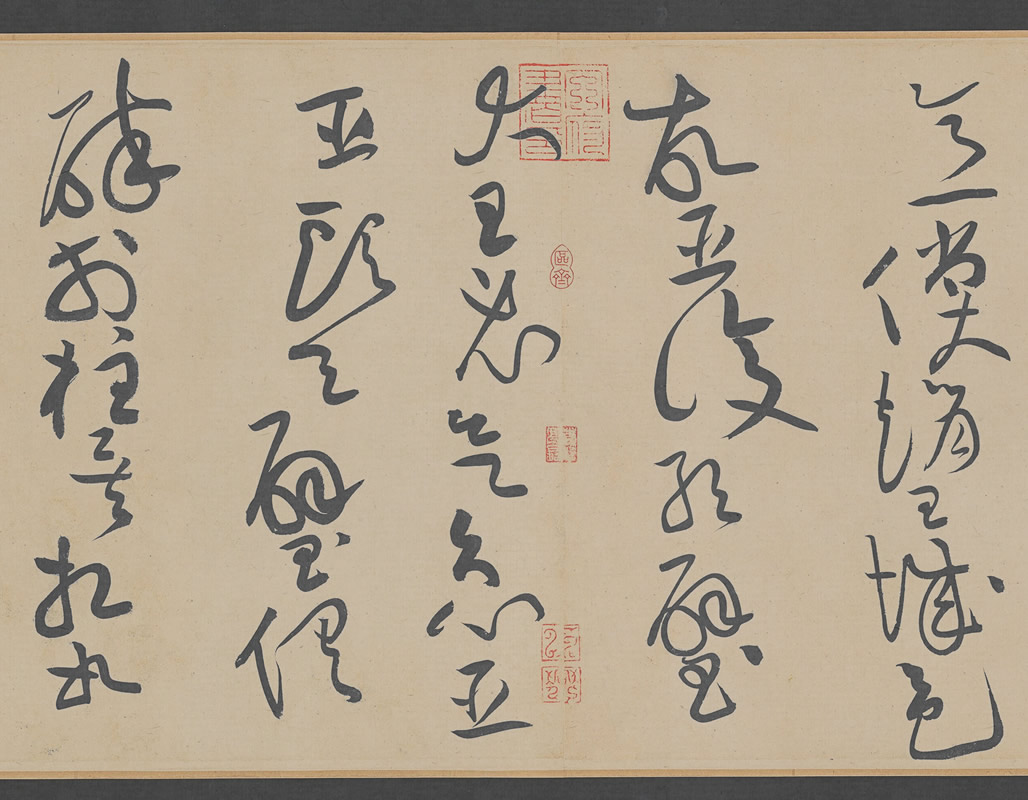 意償趙王城邑
故臣復取璧
大王必欲急臣
臣頭今璧俱
碎於柱矣相如